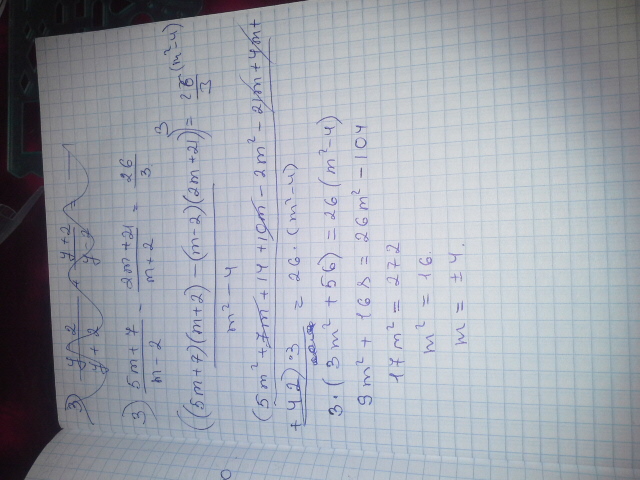 3) (y-2)/(y+2) + (y+2)/(y-2) =
3) (5m+7)/(m-2) - (2m+21)/(m+2) = 26/3
((5m+7)(m+2) - (m-2)(2m+21))3/(m²-4) = 26(m²-4)/3
(5m² + 7m + 14 + 10m - 2m² - 21m + 4m +
+ 42)·3 = 26·(m²-4)
3·(3m² + 56) = 26(m²-4)
9m² + 168 = 26m² - 104
17m² = 272
m² = 16.
m = ±4.